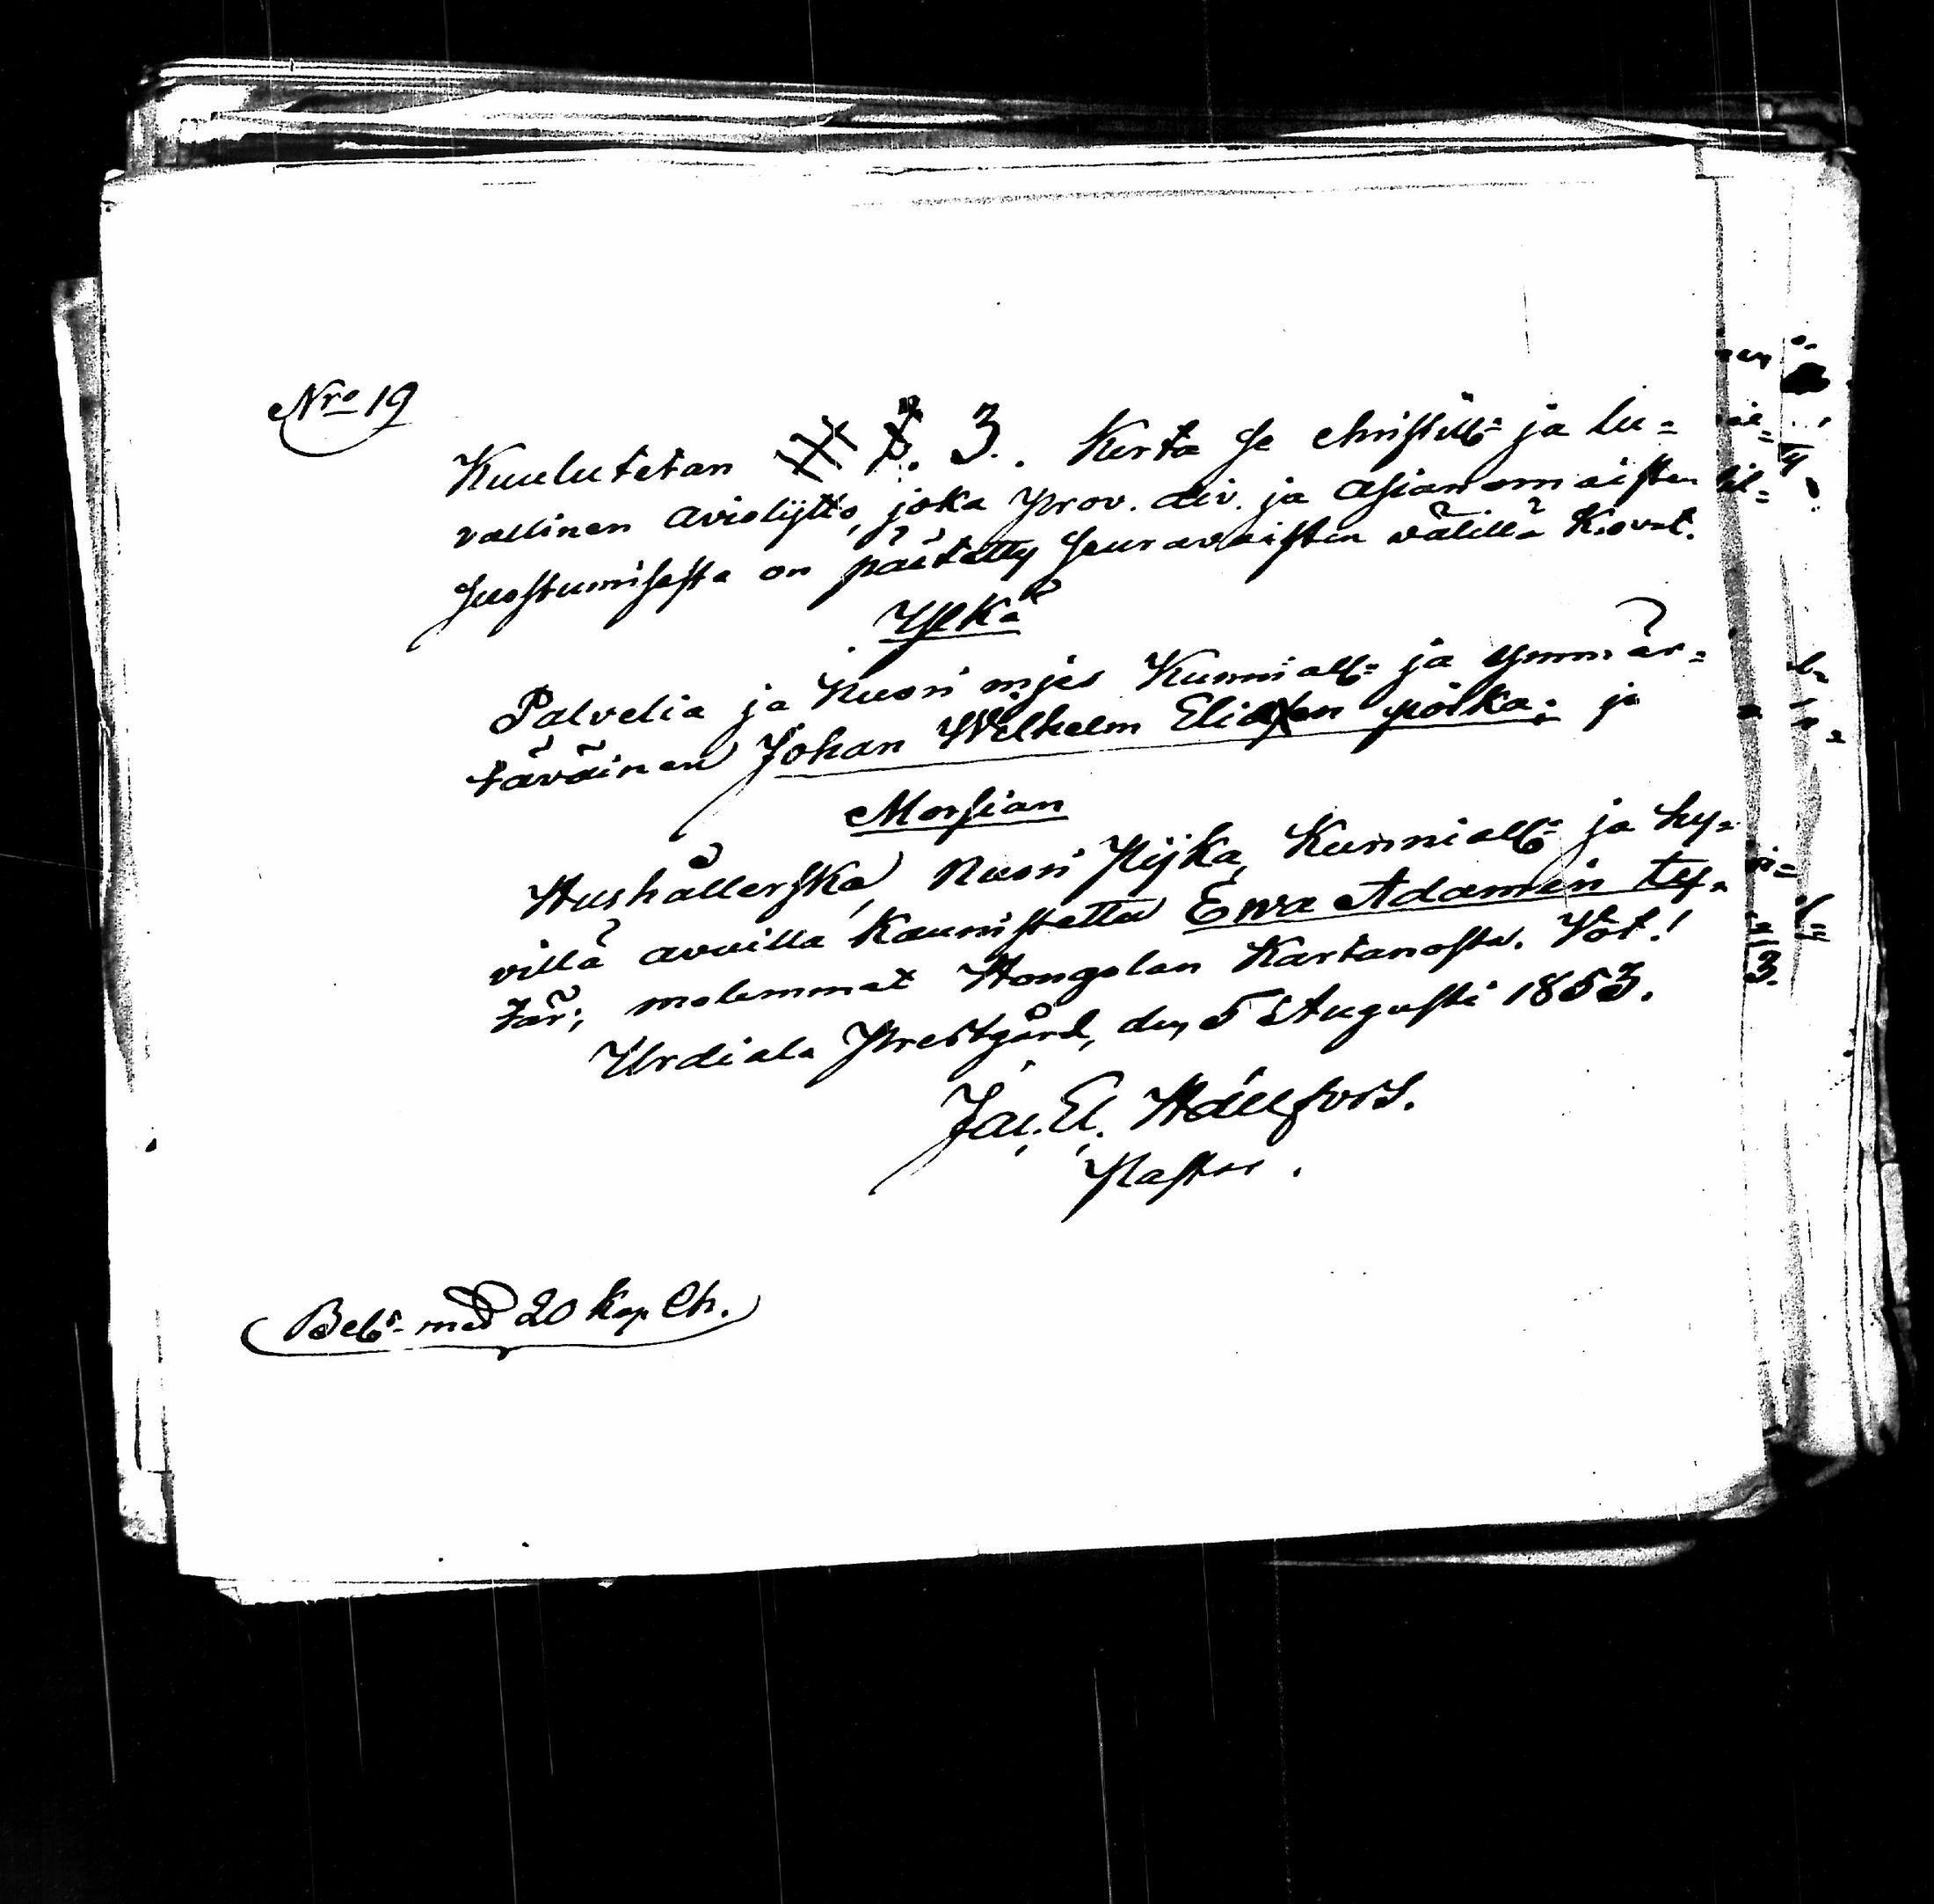 Nro 19
Kuulutetan 1. 2. 3. Kerta se christill: ja lu=
vallinen aviolijtto, joka prov. div. ja asianomaisten
suostumisesta on päätetty seuravaisten välillä Kovat.
Ylkä
Palvelia ja Nuori mjes Kunniall: ja ymmär=
täväinen Johan Wilhelm Elian poika; ja
Morsian
Hushållerska, Nuori Pijka, Kunniall: ja hy=
villä avuilla kaunistettu Ewa Adamin ty=
tär; molemmat Hongolan Kartanosta. Vot.!
Urdiala Prestgård, den 5 Augusti 1853.
Jac. El. Hällfors.
Pastor.
Bel: med 20 Kop Ch.